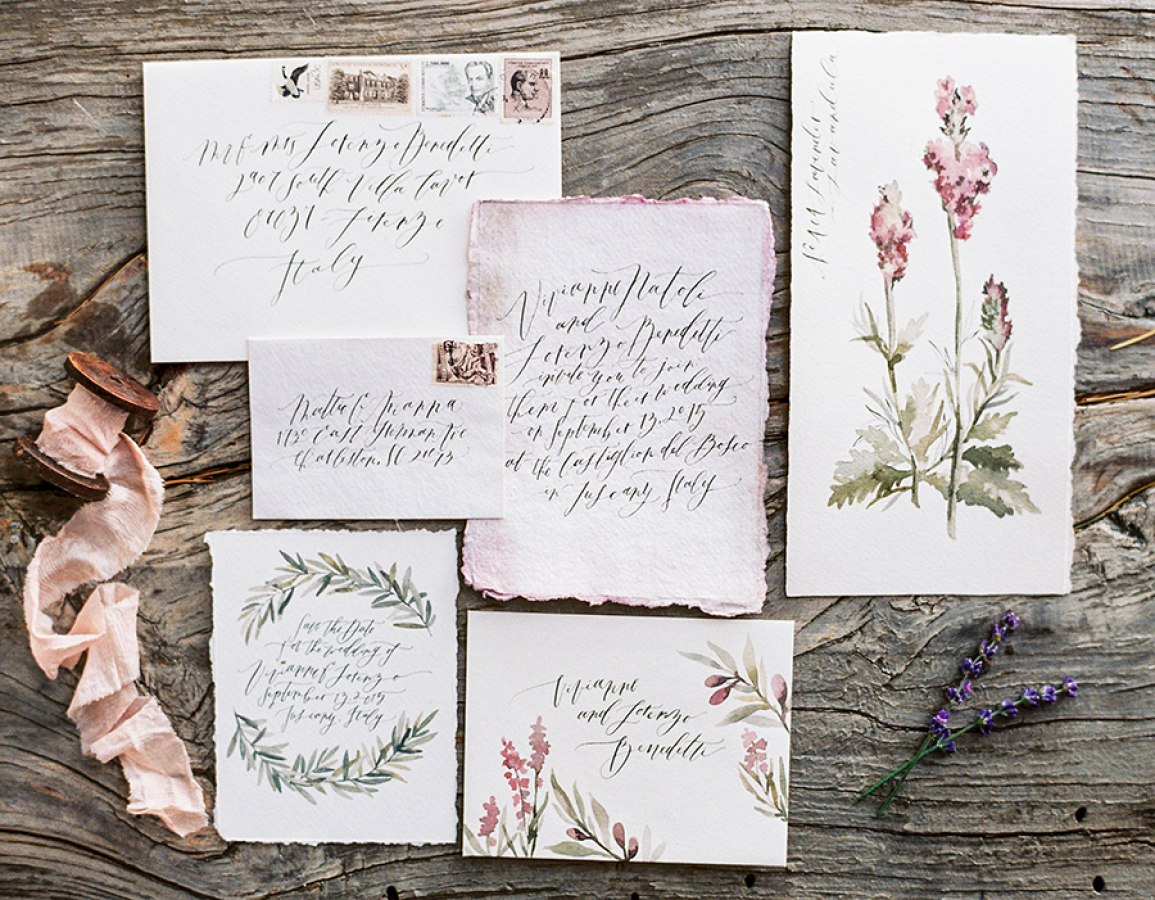 Mr & Mrs Lorenzo Benedetti
South Villa
Lorenzo
Italy
Vivianne Natoli
and
Lorenzo Benedetti
invite you to join
them for their wedding
on September 13, 2015
at the Castiglion del Bosco
in Tuscany Italy
Lavender
Lavandula
1130 East
Charleston, SC
Save the Date
for the wedding of
Vivianne & Lorenzo
September 13, 2015
Tuscany Italy
Vivianne
and Lorenzo
Benedetti